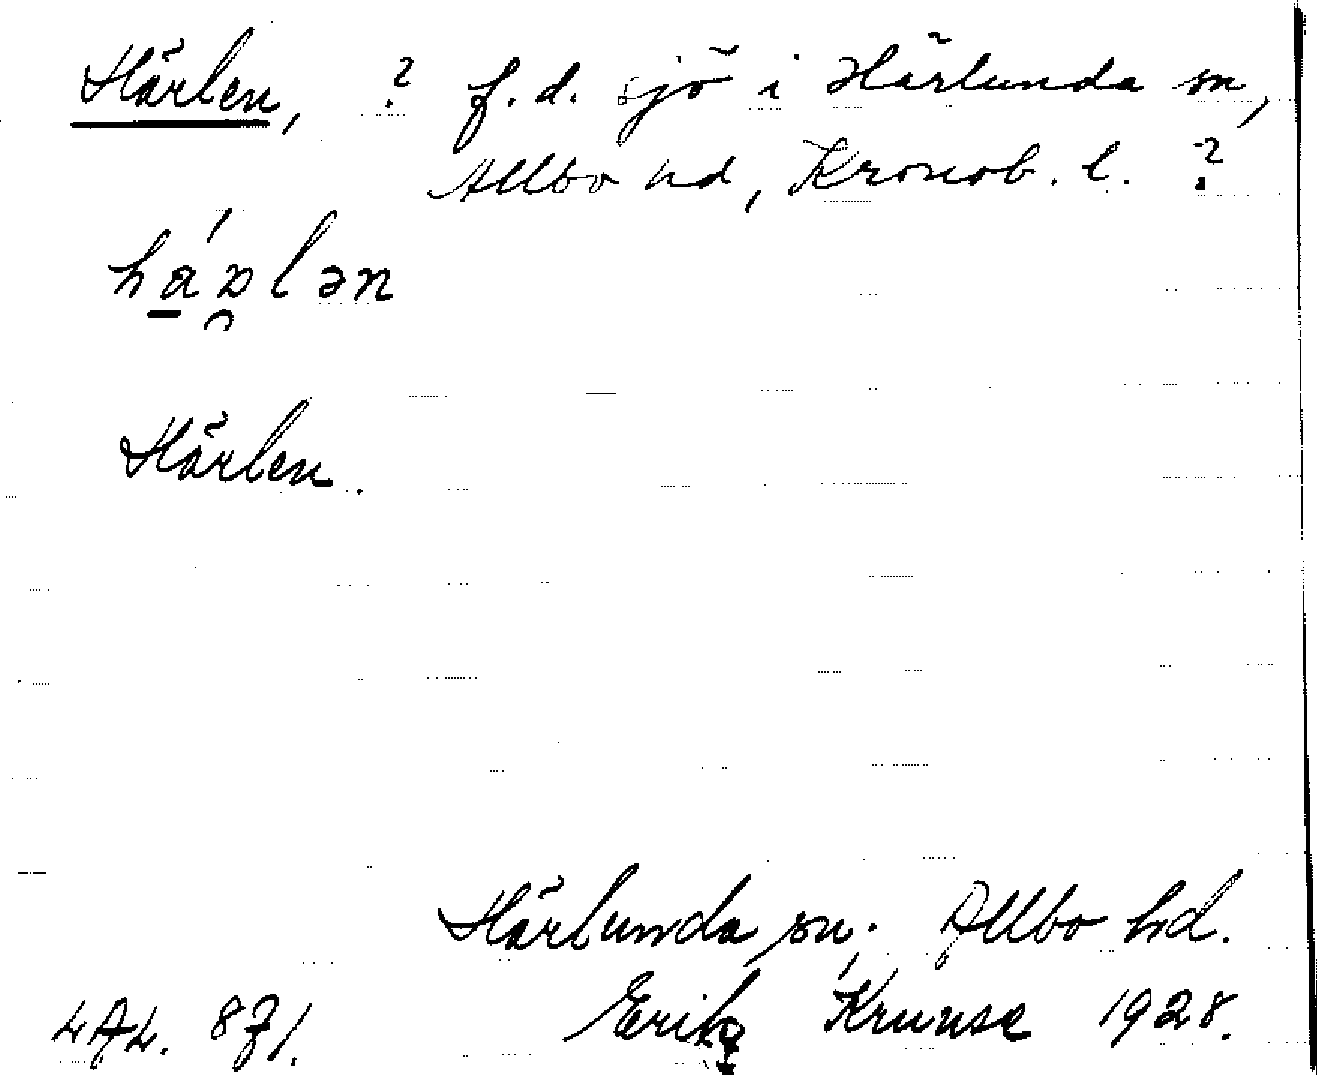 Härlen, ? f.d. sjö i Härlunda sn,
Allbo hd, Kronob. l. ?
Härlen.
Härlunda sn. Allbo hd.
Erik Krunse 1928.